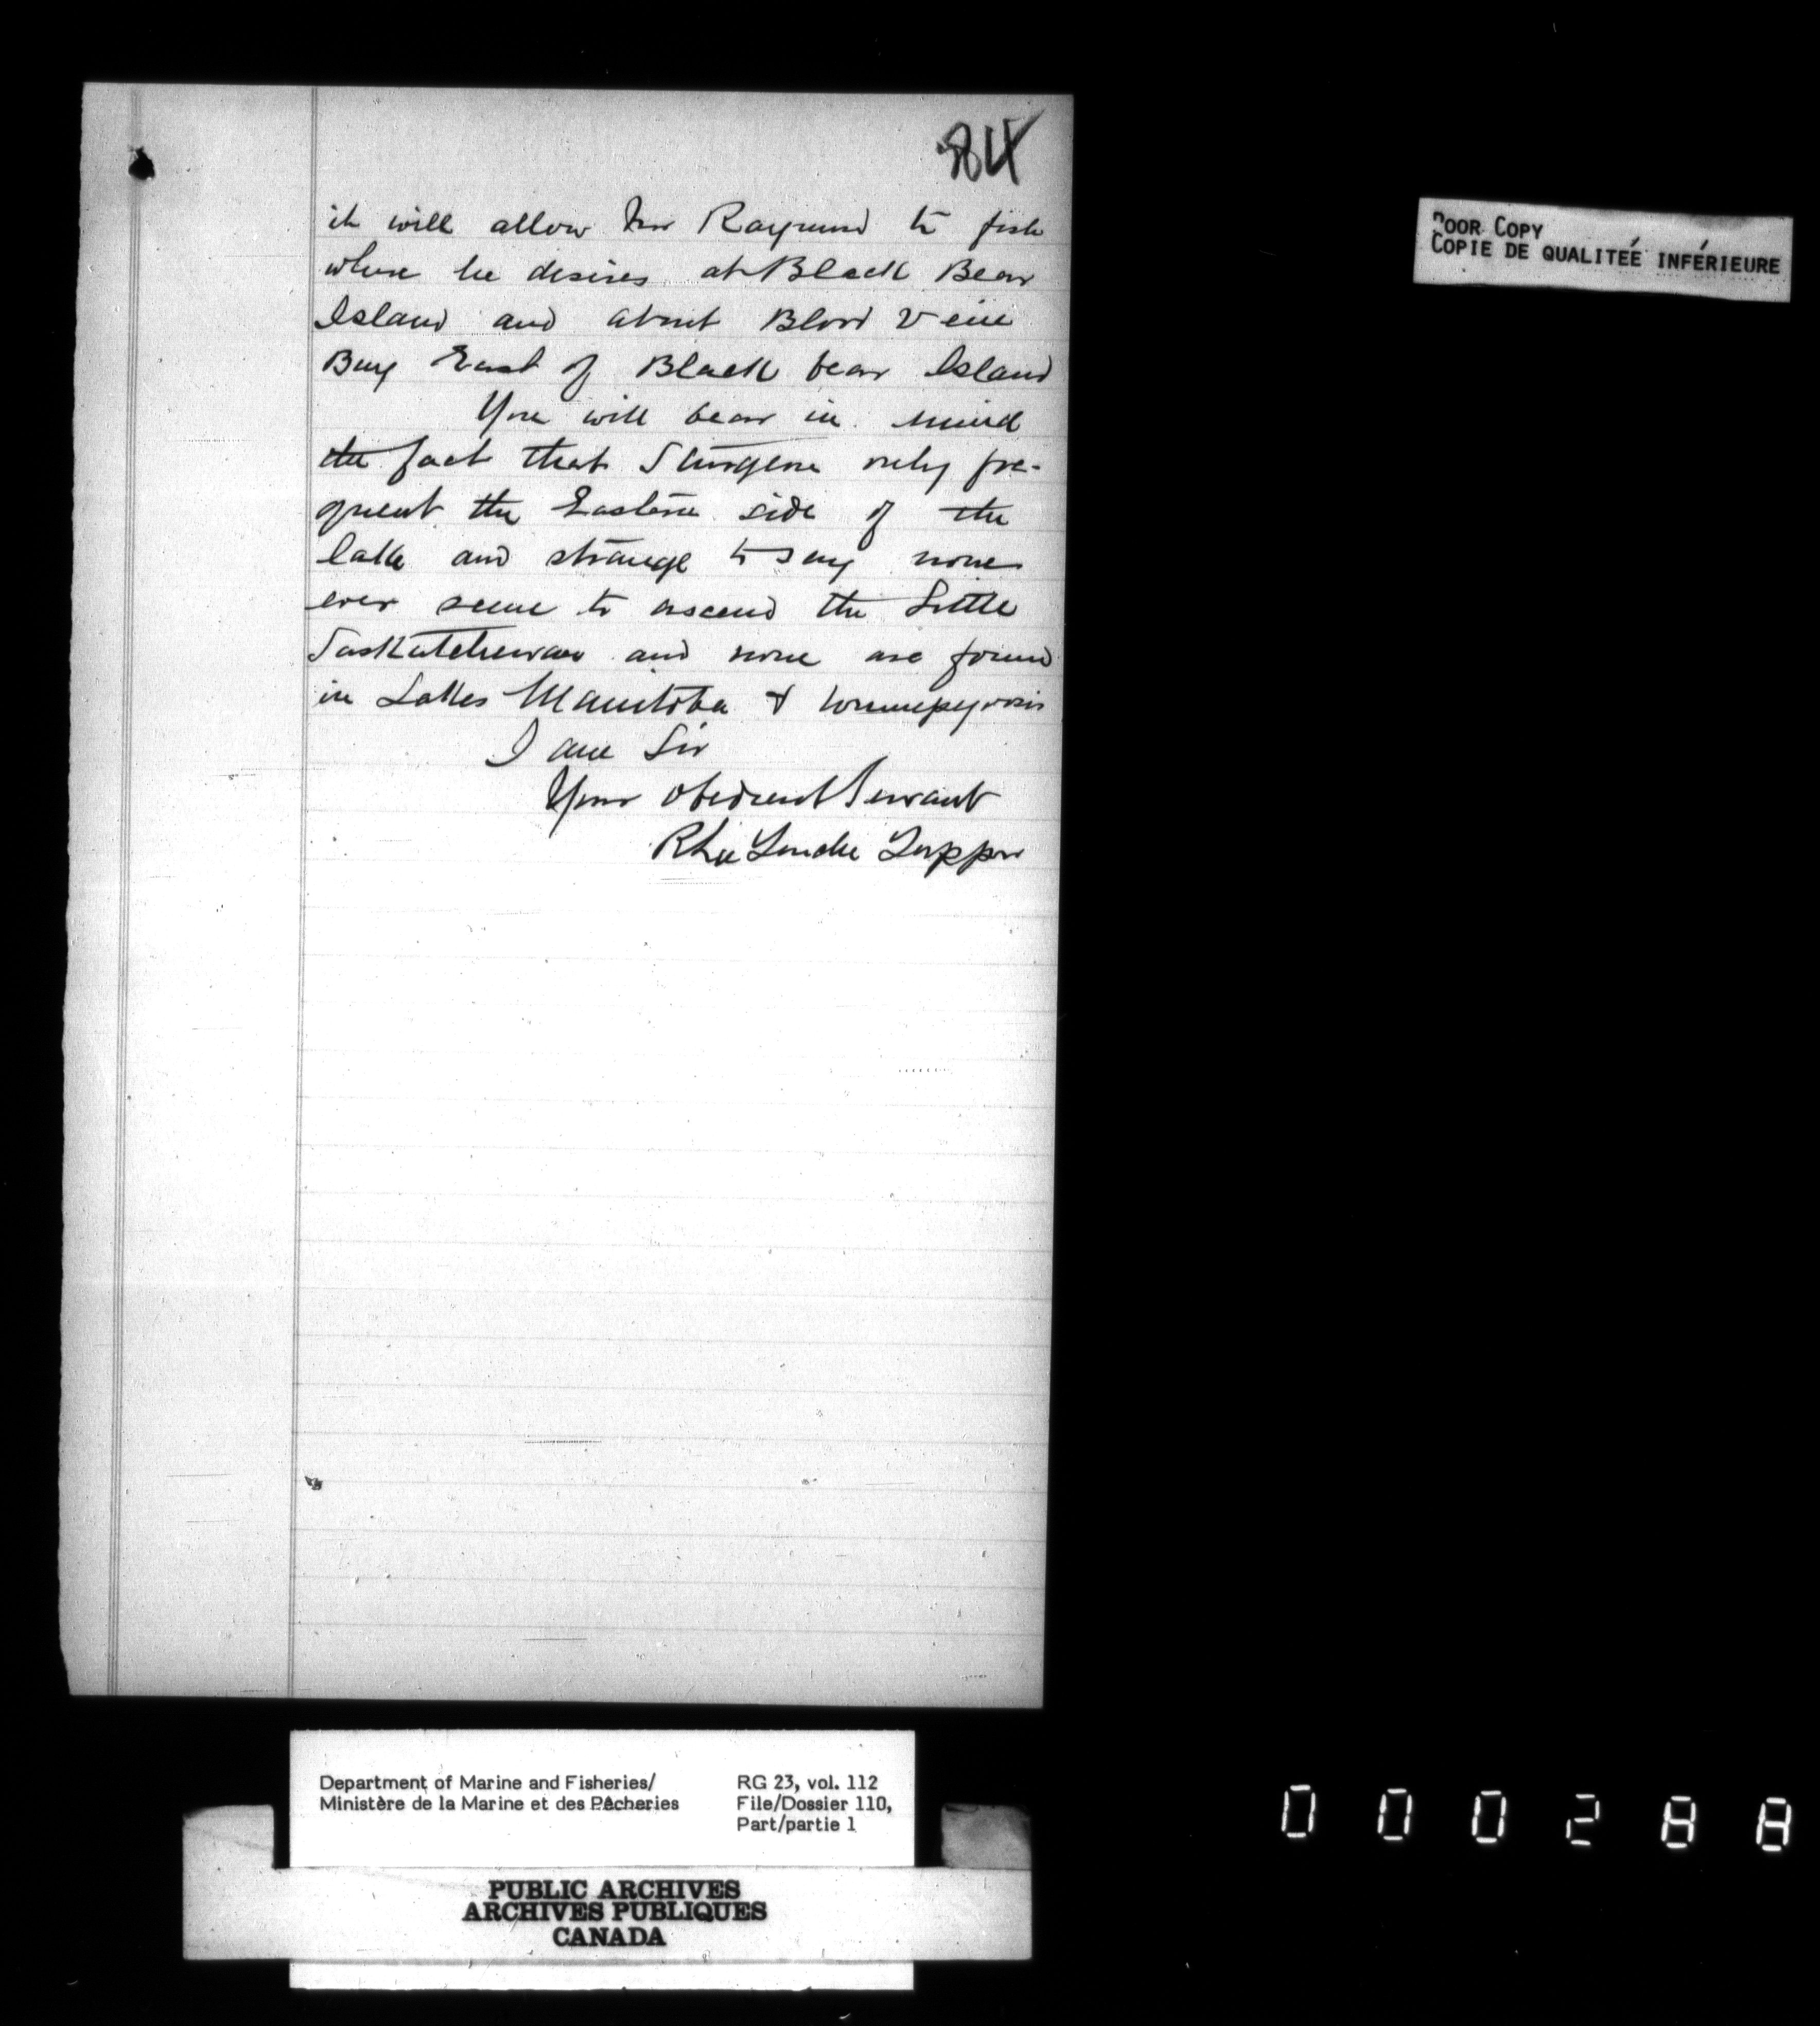 84
it will allow Mr Raymond to fish
where he desires at Black Bear
Island and about Blood Vein
Bay East of Black bear Island
You will bear in mind
the fact that Sturgeon only fre-
quent the Eastern side of the
lake and strange to say none
ever seem to ascend the Little
Saskatchewan and none are found
in Lakes Manitoba & Winnipegosis
I am Sir
Your obedient Servant
Tupper
POOR COPY
COPIE DE QUALITÉE INFÉRIEURE
Department of Marine and Fisheries/
Ministère de la Marine et des Pêcheries
RG 23, vol. 112
File/Dossier 110,
Part/partie 1
PUBLIC ARCHIVES
ARCHIVES PUBLIQUES
CANADA
000288